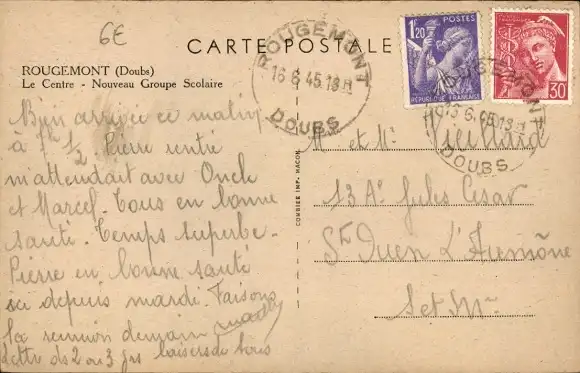 6E
CARTE POSTALE
ROUGEMONT (Doubs)
Le Centre - Nouveau Groupe Scolaire
Bien arrivée ce matin
à 7h 1/2 Pierre rentré
m'attendait avec Oncle
et Marcel. Tous en bonne
santé. Temps superbe.
Pierre en bonne santé
ici depuis mardi. Faisons
la reunion demain
Lettre ds 2 ou 3 jrs baisers de tous
COMBIER IMP. MACON
ROUGEMONT
16 6 45.18H
DOUBS
1F20
POSTES
RÉPUBLIQUE FRANÇAISE
30
ROUGEMONT
6.45.18H
DOUBS
M et Me
13 Ae Jules Cesar
St Ouen L'Aumône
Set Me